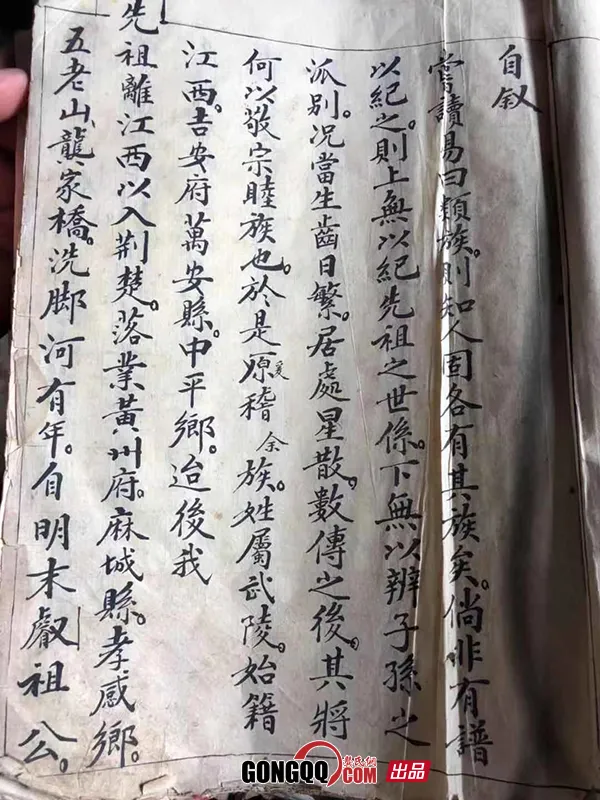 自叙
嘗讀易曰類族。則知人固各有其族矣。倘非有譜
以紀之。則上無以紀先祖之世係。下無以辨子孫之
派别。况當生齒日繁。居處星散。數傳之後。其將
何以敬宗睦族也。於是爰原稽余族。姓屬武陵。始籍
江西。吉安府萬安縣。中平鄉。迨後我
先祖離江西以入荆楚。落業黃州府。麻城縣。孝感鄉。
五老山龔家橋。洗脚河有年。自明末叡祖公。
龔氏網
GONGQQ.COM 出品